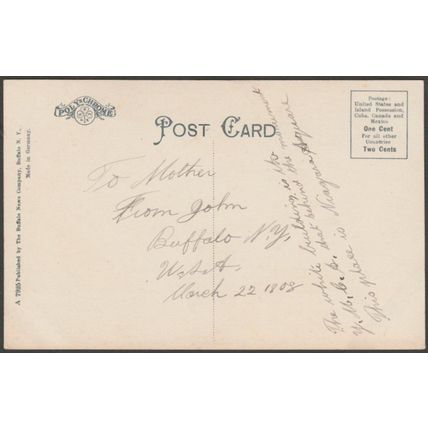 POLY-CHROME
POST CARD
Postage:
United States and
Island Possession,
Cuba, Canada and
Mexico
One Cent
For all other
Countries
Two Cents
To Mother
From John
Buffalo N.Y.
U.S.A.
March 22 1808
The white building is the
Y.M.C.A. that behind the monument
This place is Niagara Square
A 7925 Published by The Buffalo News Company, Buffalo N.Y.,
Made in Germany.